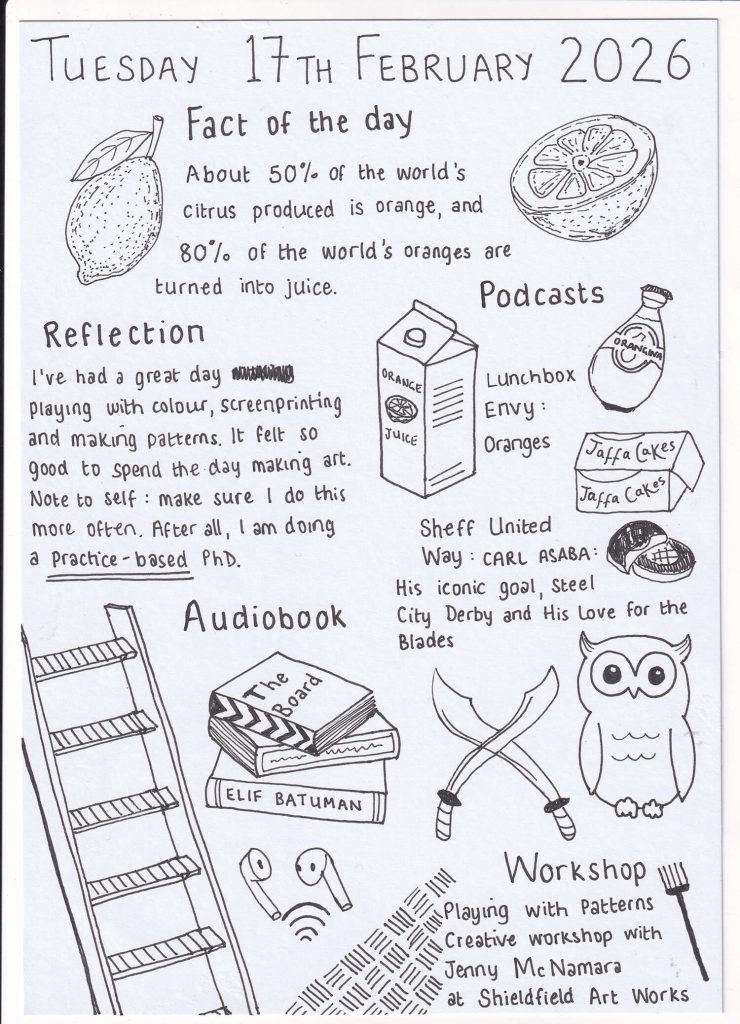 TUESDAY 17TH FEBRUARY 2026
Fact of the day
About 50% of the world's
citrus produced is orange, and
80% of the world's oranges are
turned into juice.
Reflection
I've had a great day
playing with colour, screenprinting
and making patterns. It felt so
good to spend the day making art.
Note to self: make sure I do this
more often. After all, I am doing
a Practice-based PhD.
Podcasts
ORANGE
JUICE
Lunchbox
Envy:
Oranges
ORANGINA
Jaffa Cakes
Jaffa Cakes
Sheff United
Way: CARL ASABA:
His iconic goal, Steel
City Derby and His Love for the
Blades
Audiobook
The
Board
ELIF BATUMAN
Workshop
Playing with Patterns
Creative workshop with
Jenny McNamara
at Shieldfield Art Works